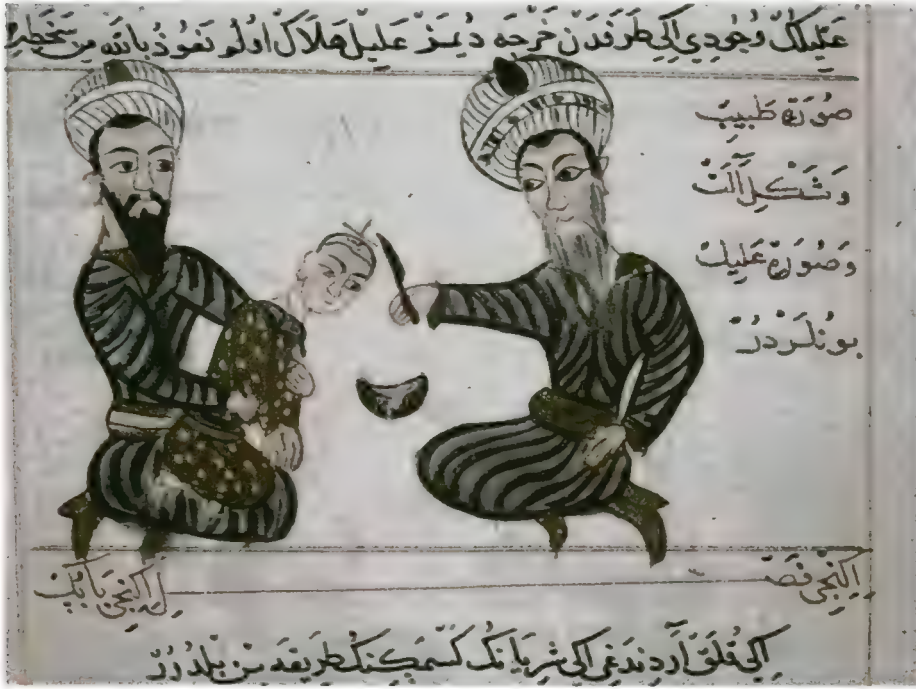 علیلك وجودي اكي طرفدن خرجه ديمز عليل هلاك اولو نعوذ بالله من سخطه
صورة طبيب
وشكل آلت
وصورة عليل
بونلردر
ايكنجي فصل
ايكنجي بابك
اكي قلق آردندغي اكي شريانك كسمكنك طريقه سن بلدرر